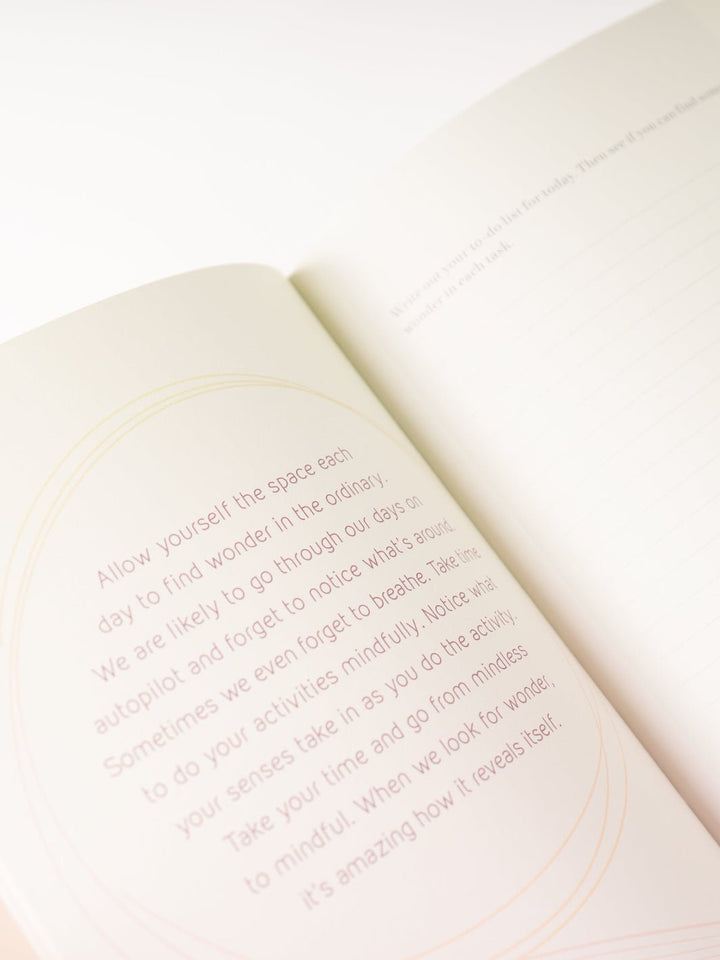 Allow yourself the space each
day to find wonder in the ordinary.
We are likely to go through our days on
autopilot and forget to notice what's around.
Sometimes we even forget to breathe. Take time
to do your activities mindfully. Notice what
your senses take in as you do the activity.
Take your time and go from mindless
to mindful. When we look for wonder,
it's amazing how it reveals itself.
Write out your to-do list for today. Then see if you can find some
wonder in each task.